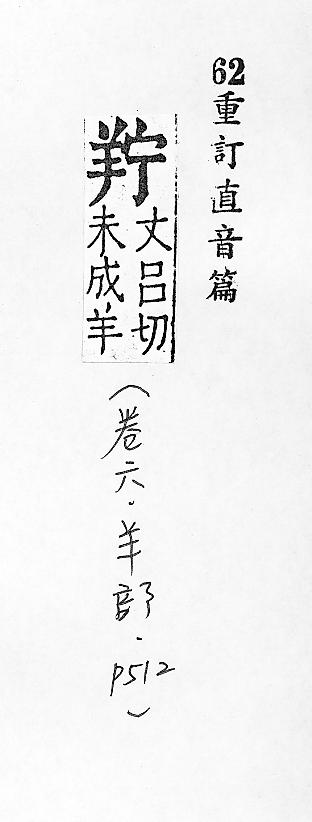 62重訂直音篇
羜
丈呂切
未成羊
（卷六．羊部．P512）